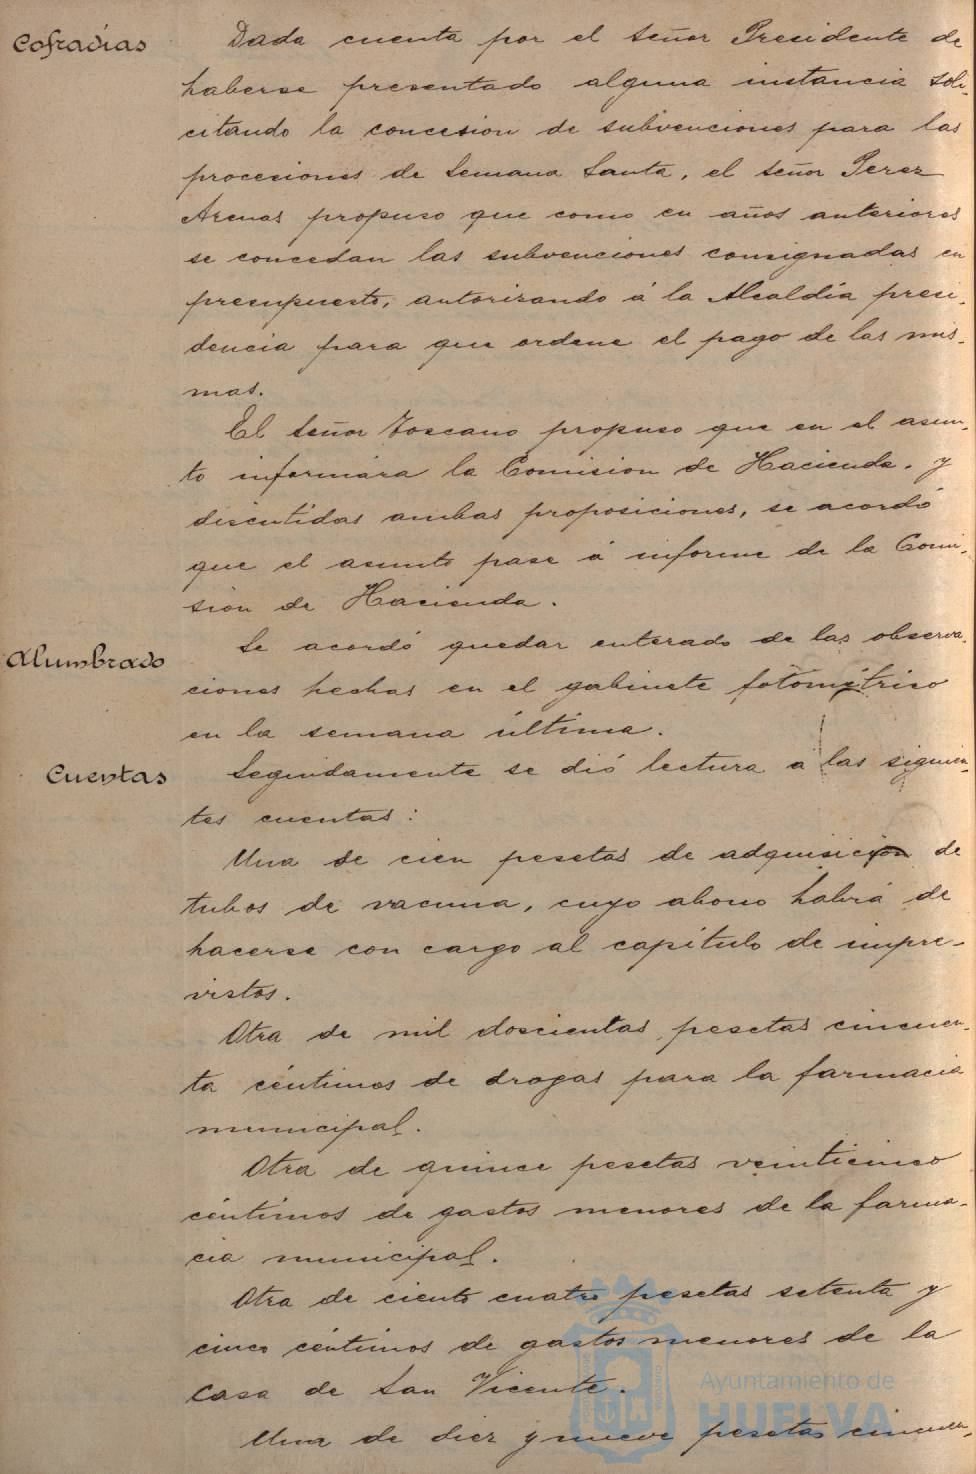 Cofradias
Dada cuenta por el señor Presidente de
haberse presentado alguna instancia soli-
citando la concesion de subvenciones para las
procesiones de Semana Santa, el señor Perez
Arenas propuso que como en años anteriores
se concedan las subvenciones consignadas en
presupuesto, autorizando á la Alcaldía presi-
dencia para que ordene el pago de las mis-
mas.
El señor Toscano propuso que en el asun-
to informára la Comision de Hacienda. y
discutidas ambas proposiciones, se acordó
que el asunto pase á informe de la Comi-
sion de Hacienda.
Alumbrado
Se acordó quedar enterado de las observa-
ciones hechas en el gabinete fotométrico
en la semana última.
Cuentas
Seguidamente se dió lectura á las siguien-
tes cuentas:
Una de cien pesetas de adquisición de
tubos de vacuna, cuyo abono habrá de
hacerse con cargo al capítulo de impre-
vistos.
Otra de mil doscientas pesetas cincuen-
ta céntimos de drogas para la farmacia
municipal.
Otra de quince pesetas veinticinco
céntimos de gastos menores de la farma-
cia municipal.
Otra de ciento cuatro pesetas setenta y
cinco céntimos de gastos menores de la
Casa de San Vicente.
Una de diez y nueve pesetas cincuen-
Ayuntamiento de
HUELVA